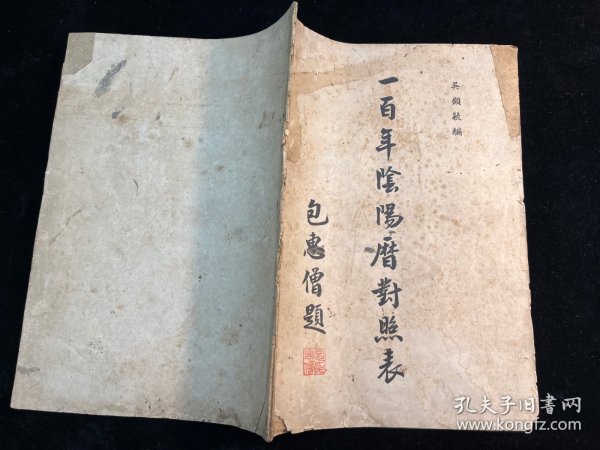 吳頌毓編
一百年陰陽曆對照表
包惠僧題
孔夫子旧書网
www.kongfz.com